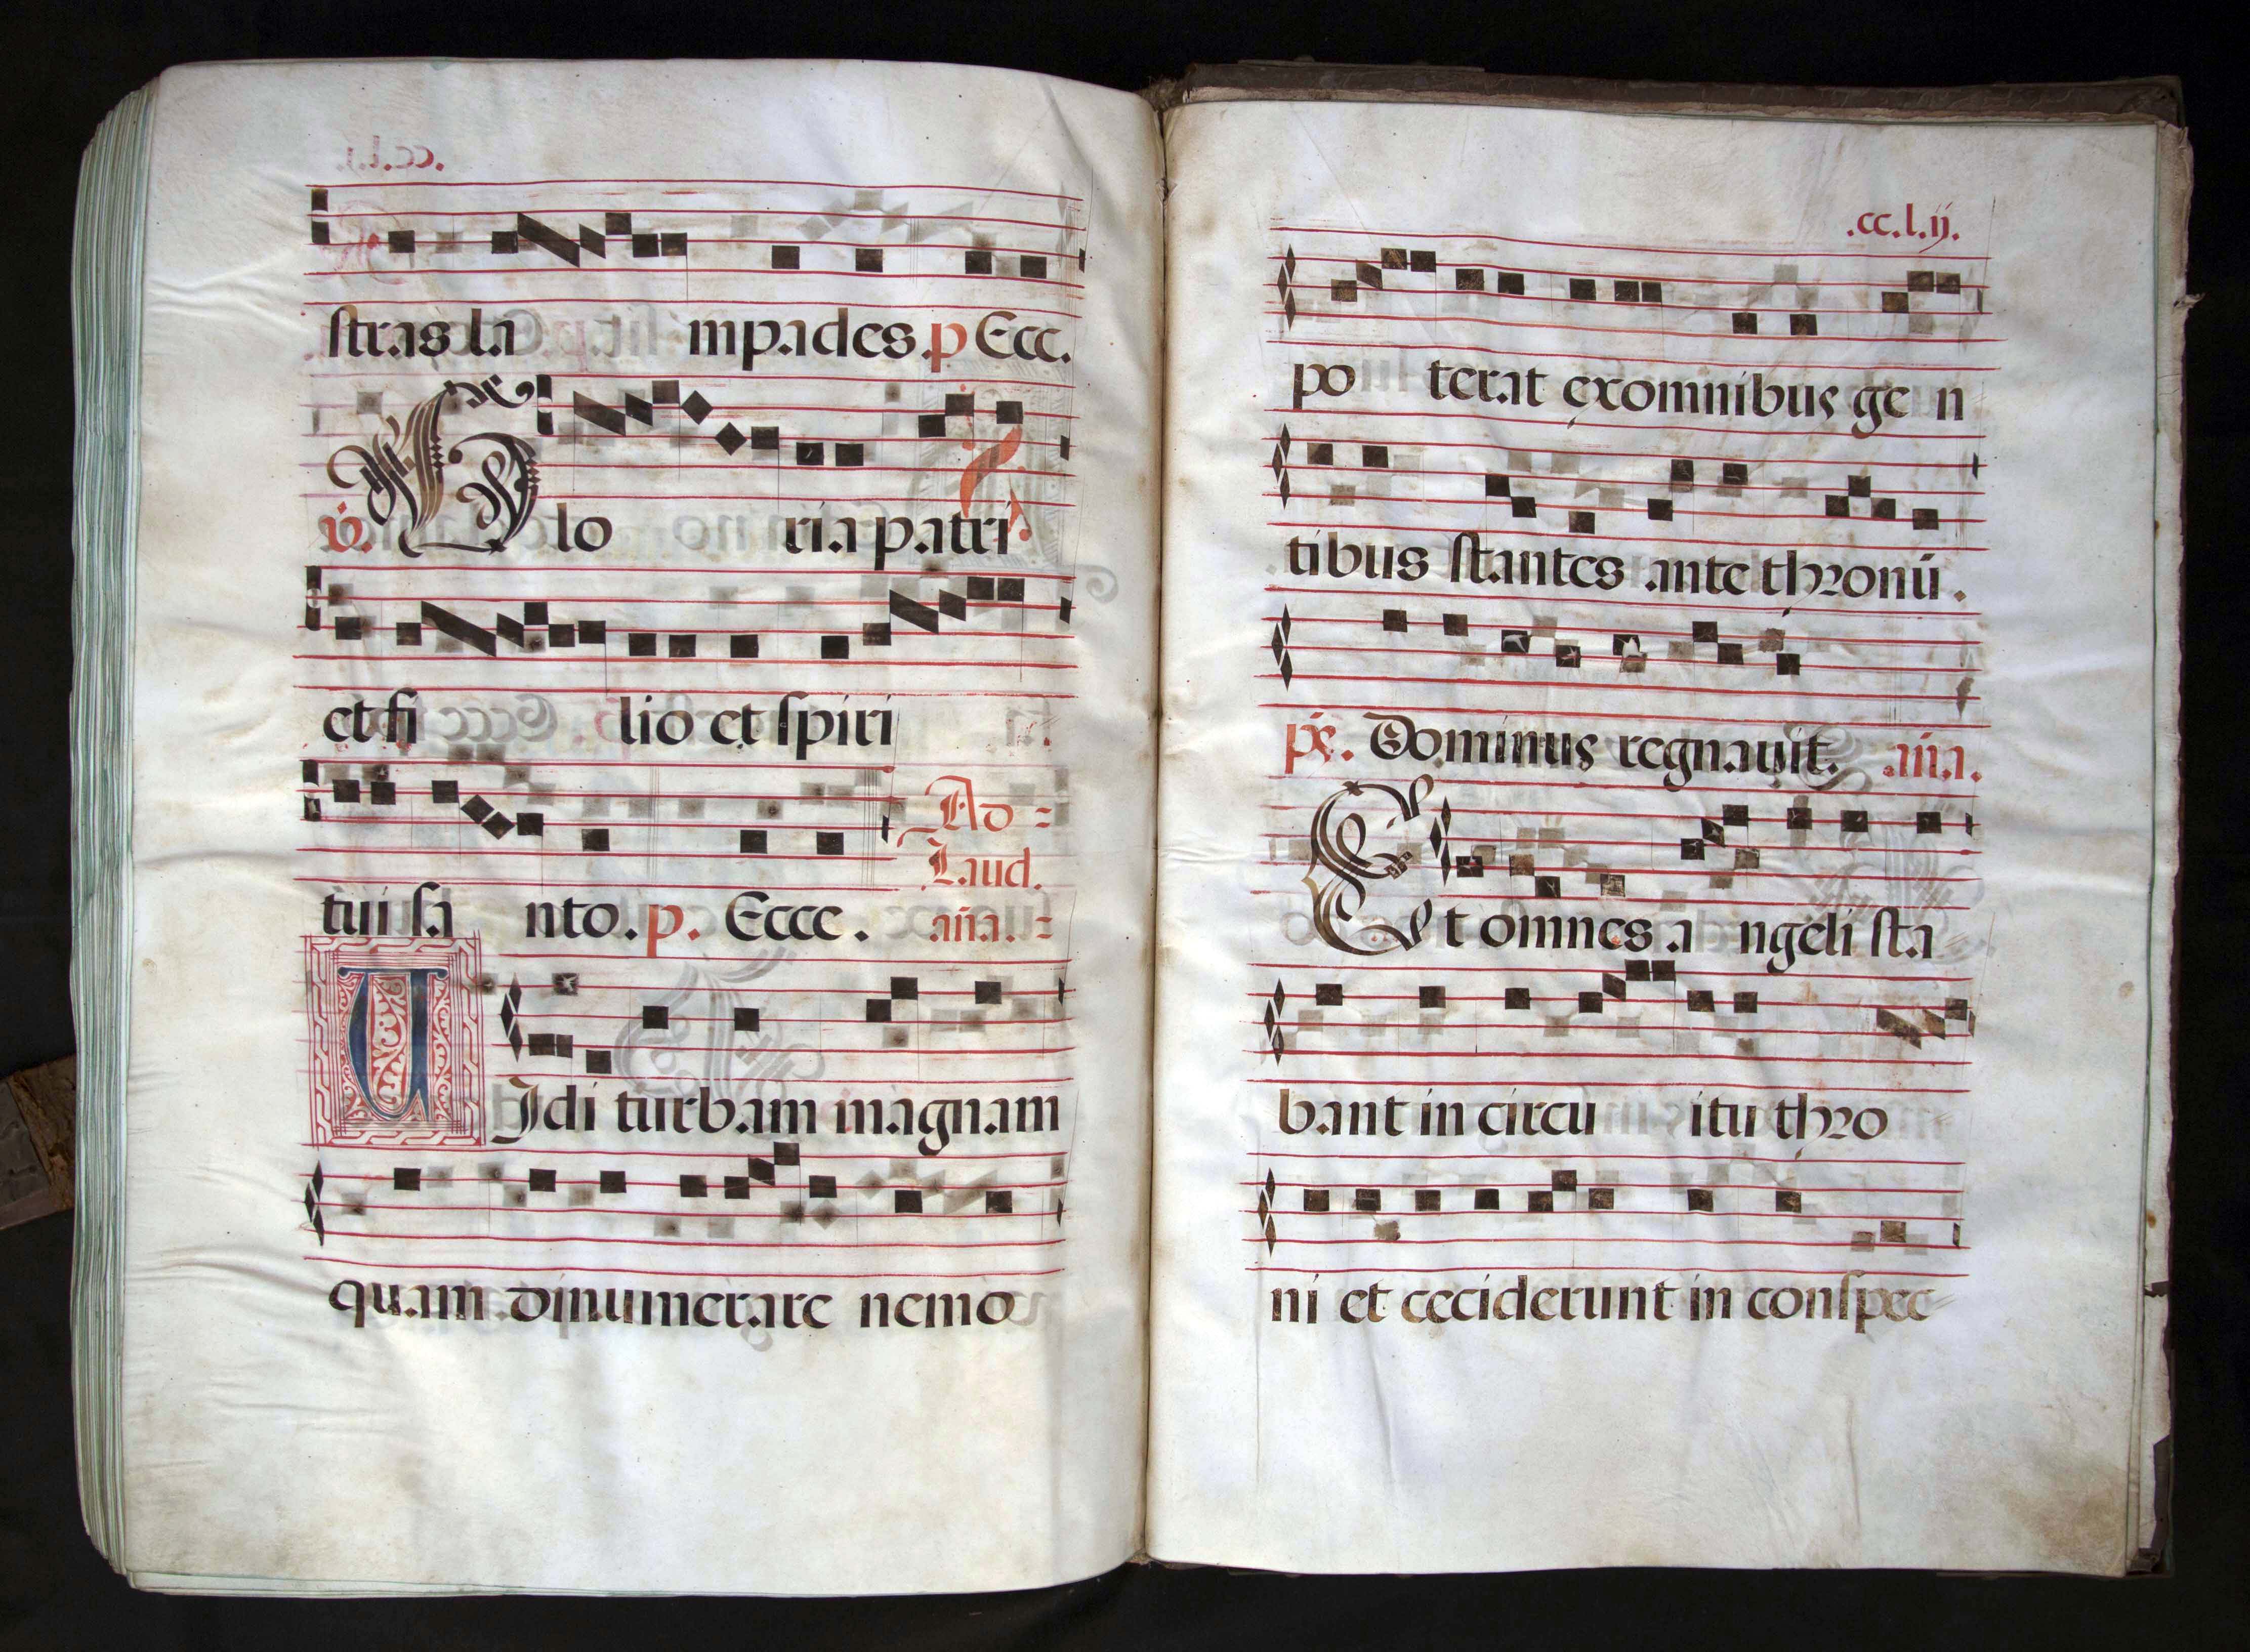 stras la mpades. p Ecc.
v. Glo ria patri
et fi lio et spiri
tui sa nto. p. Ecce.
Ad =
Laud.
an̄a. =
UIdi turbam magnam
quam dinumerare nemo
.cc.l.ij.
po terat ex omnibus ge n
tibus stantes ante thronū.
ps. Dominus regnauit. an̄a.
Et omnes a ngeli sta
bant in circu itu thro
ni et ceciderunt in conspec